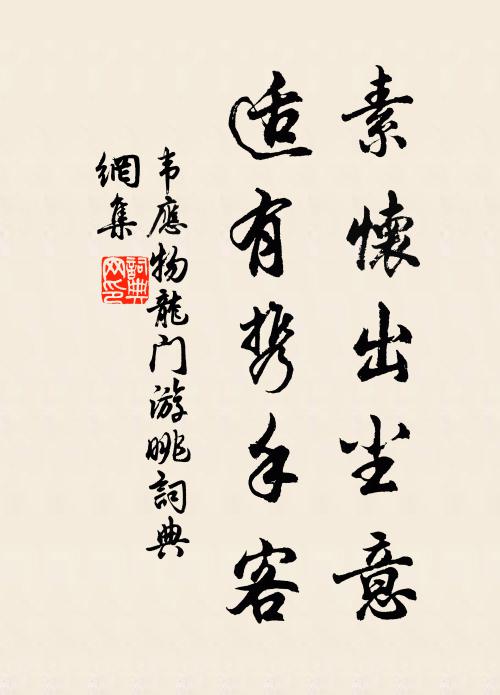 素懷出尘意
适有携手客
韦應物龍门游眺詞典
網集
詞典
网印